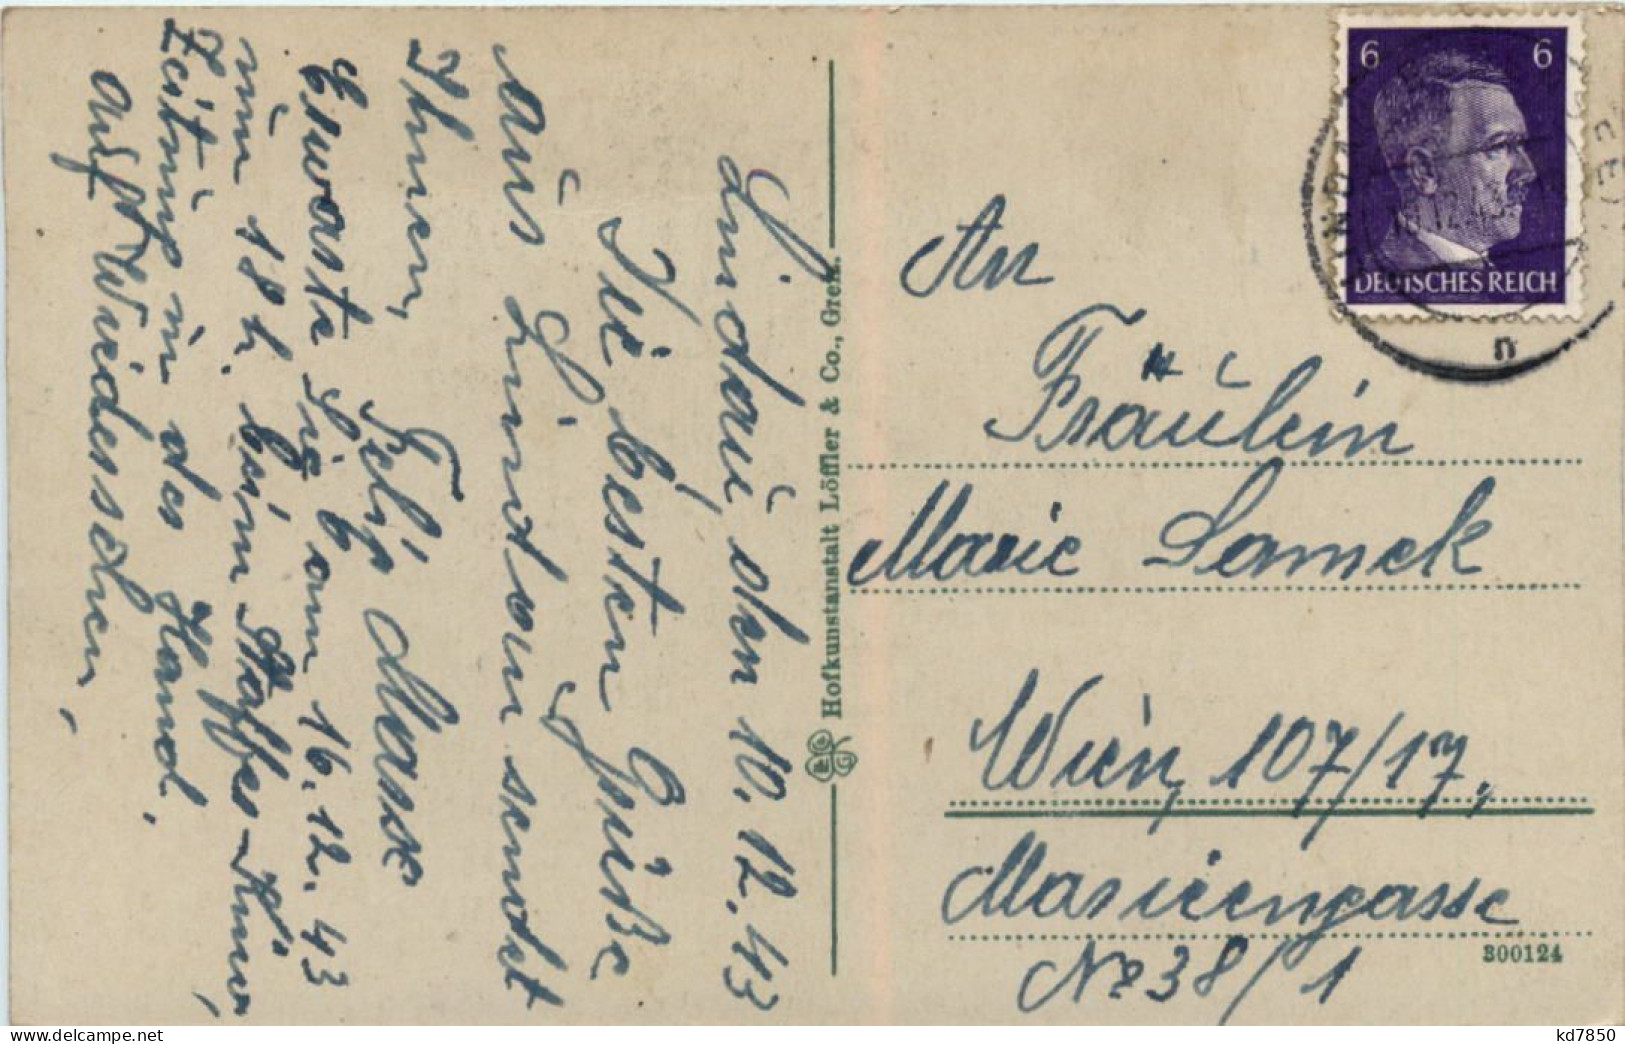 Lindau, den 10.12.43
Die besten Grüße
aus Lindau sendet
Ihnen,
Felix
Erwarte Sie am 16.12.43
um 18 h. beim Staffes-Kino,
Zeitung in der Hand.
Auf Wiedersehen,
Hofkunstanstalt Löffler & Co., Greiz.
6 6
DEUTSCHES REICH
LINDAU
n
An
Fräulein
Marie Samek
Wien, 107/17,
Mariengasse
No 38/1
300124
kd7850